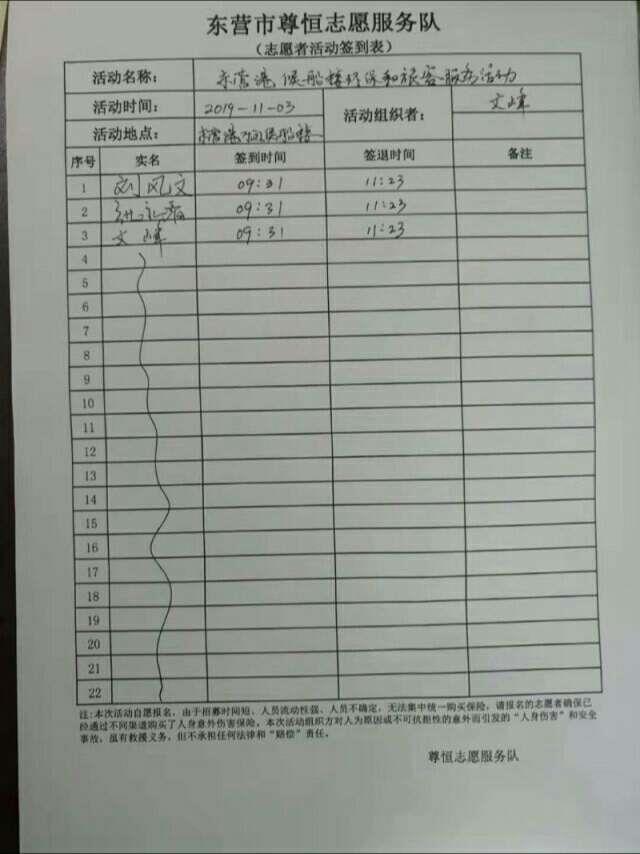 东营市尊恒志愿服务队
（志愿者活动签到表）
活动名称： 东营港候船楼环保和旅客服务活动
活动时间： 2019-11-03 活动组织者： 文峰
活动地点： 东营港
序号 实名 签到时间 签退时间 备注
1 刘风文 09:31 11:23
2 09:31 11:23
3 文峰 09:31 11:23
4
5
6
7
8
9
10
11
12
13
14
15
16
17
18
19
20
21
22
注:本次活动自愿报名，由于招募时间短、人员流动性强、人员不确定，无法集中统一购买保险，请报名的志愿者确保已
经通过不同渠道购买了人身意外伤害保险。本次活动组织方对人为原因或不可抗拒性的意外而引发的“人身伤害”和安全
事故，虽有救援义务，但不承担任何法律和“赔偿”责任。
尊恒志愿服务队